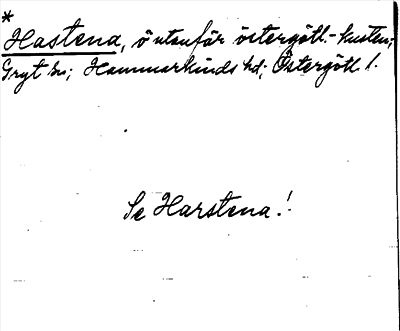 *
Hastena, ö utanför östergötl.-kusten;
Gryt sn; Hammarkinds hd; Östergötl. l.
Se Harstena!